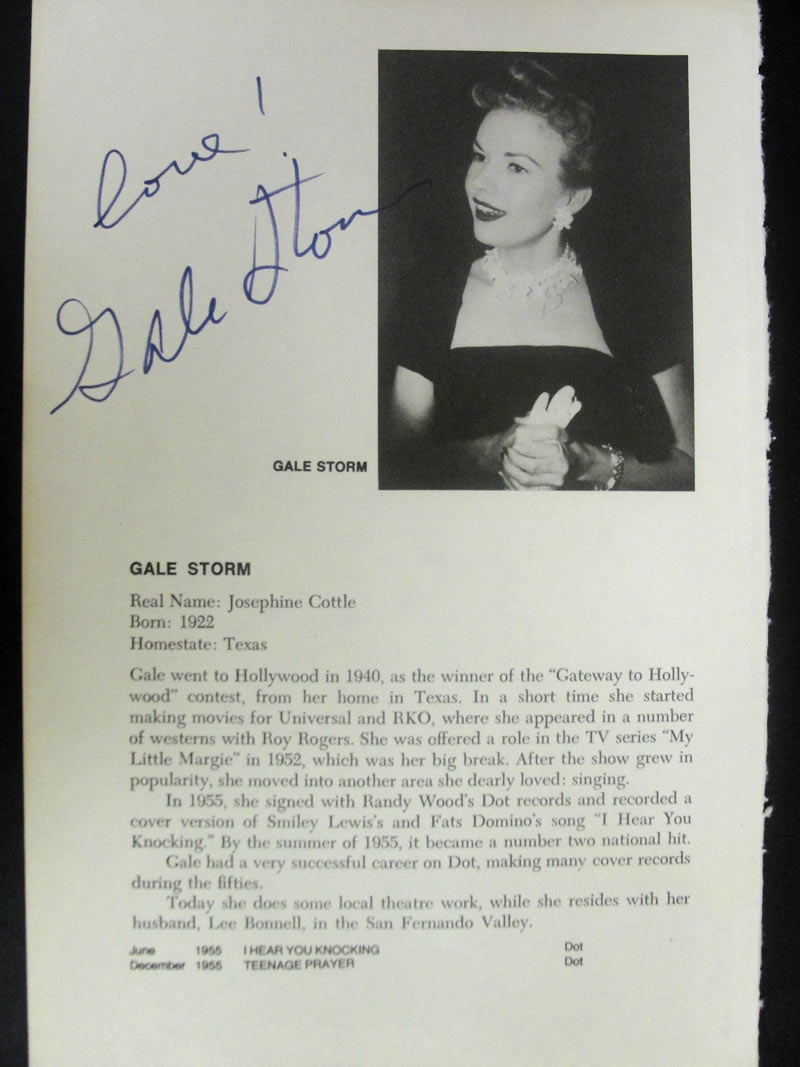 love!
Gale Storm
GALE STORM
GALE STORM
Real Name: Josephine Cottle
Born: 1922
Homestate: Texas
Gale went to Hollywood in 1940, as the winner of the "Gateway to Holly-
wood" contest, from her home in Texas. In a short time she started
making movies for Universal and RKO, where she appeared in a number
of westerns with Roy Rogers. She was offered a role in the TV series "My
Little Margie" in 1952, which was her big break. After the show grew in
popularity, she moved into another area she dearly loved: singing.
In 1955, she signed with Randy Wood's Dot records and recorded a
cover version of Smiley Lewis's and Fats Domino's song "I Hear You
Knocking." By the summer of 1955, it became a number two national hit.
Gale had a very successful career on Dot, making many cover records
during the fifties.
Today she does some local theatre work, while she resides with her
husband, Lee Bonnell, in the San Fernando Valley.
June 1955 I HEAR YOU KNOCKING Dot
December 1955 TEENAGE PRAYER Dot